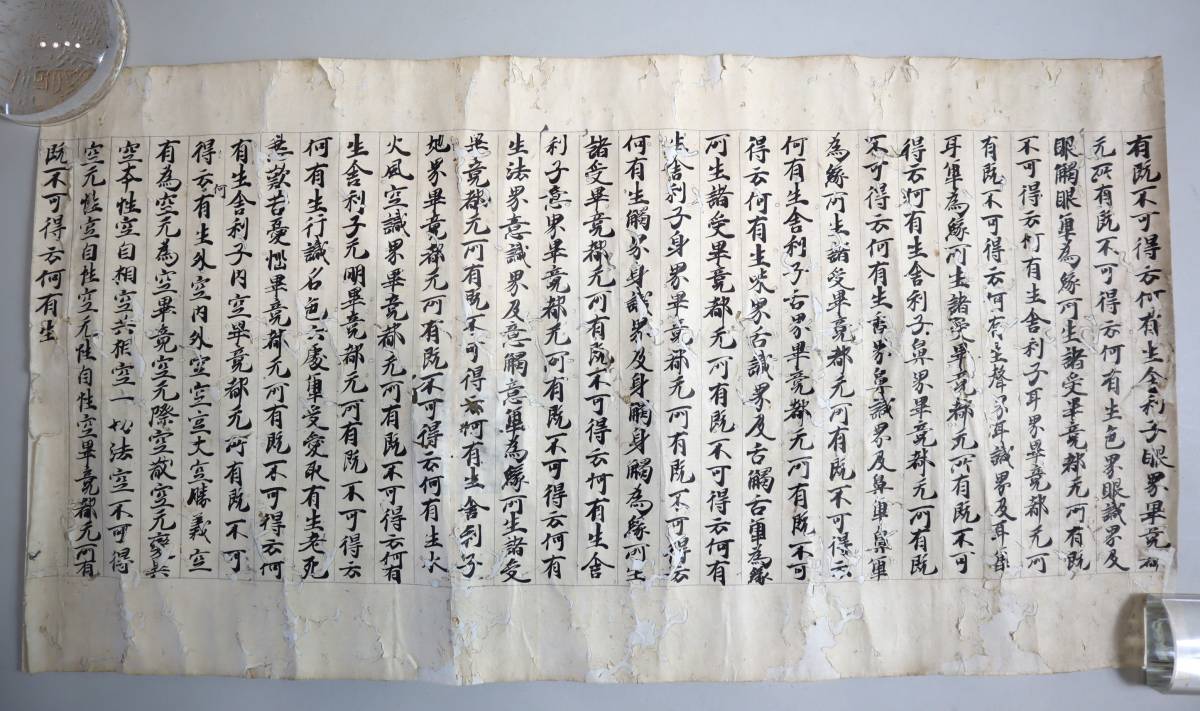 有既不可得云何有生舍利子眼界畢竟都
元所有既不可得云何有生色界眼識界及
眼觸眼畢為緣所生諸受畢竟都元所有既
不可得云何有生舍利子耳界畢竟都元所
有既不可得云何有生聲界耳識界及耳觸
耳畢為緣所生諸受畢竟都元所有既不可
得云何有生舍利子鼻界畢竟都元所有既
不可得云何有生香界鼻識界及鼻畢鼻畢
為緣所生諸受畢竟都元所有既不可得云
何有生舍利子舌界畢竟都元所有既不可
得云何有生味界舌識界及舌觸舌畢為緣
所生諸受畢竟都元所有既不可得云何有
生舍利子身界畢竟都元所有既不可得云
何有生觸界身識界及身觸身觸為緣所生
諸受畢竟都元所有既不可得云何有生舍
利子意界畢竟都元所有既不可得云何有
生法界意識界及意觸意畢為緣所生諸受
畢竟都元所有既不可得云何有生舍利子
地界畢竟都元所有既不可得云何有生水
火風空識界畢竟都元所有既不可得云何有
生舍利子元明畢竟都元所有既不可得云
何有生行識名色六處畢受愛取有生老死
愁歎苦憂惱畢竟都元所有既不可得云何
有生舍利子內空畢竟都元所有既不可
得云何有生外空內外空空空大空勝義空
有為空元為空畢竟空元際空散空元變異
空本性空自相空共相空一切法空不可得
空元性空自性空元性自性空畢竟都元所有
既不可得云何有生